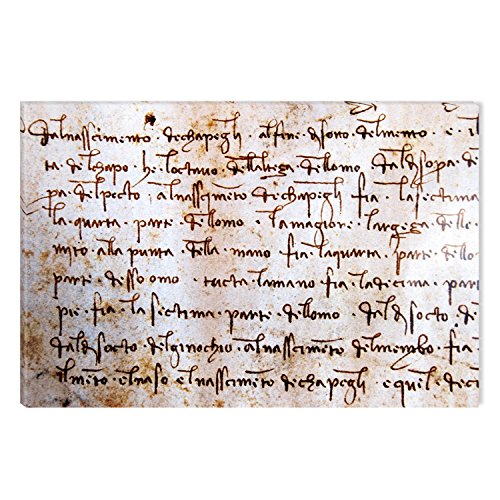 dalnasscimento · dechapegli · alfine · disono · delmento · e · il
ta · delchapo · he · loctavo · dellaltega · dellomo · daldisopa · de
pa · delpecto · alnasscimeto dechapegli · fia · lasectima
la · quarta · parte · dellomo · lamagiore · largega · delle
mito · alla punta · della · mano · fia · laquarta · parte · dello
parte · dessomo · tucta · lamano · fia · ladecima · part
pie · fia · la sectima · parte · dellomo · daldisocto · de
daldisocto · delginochio · alnasscimeto · delmembro · fia
ilmeto · elnaso · elnasscimeto dechapegli · equel · deci